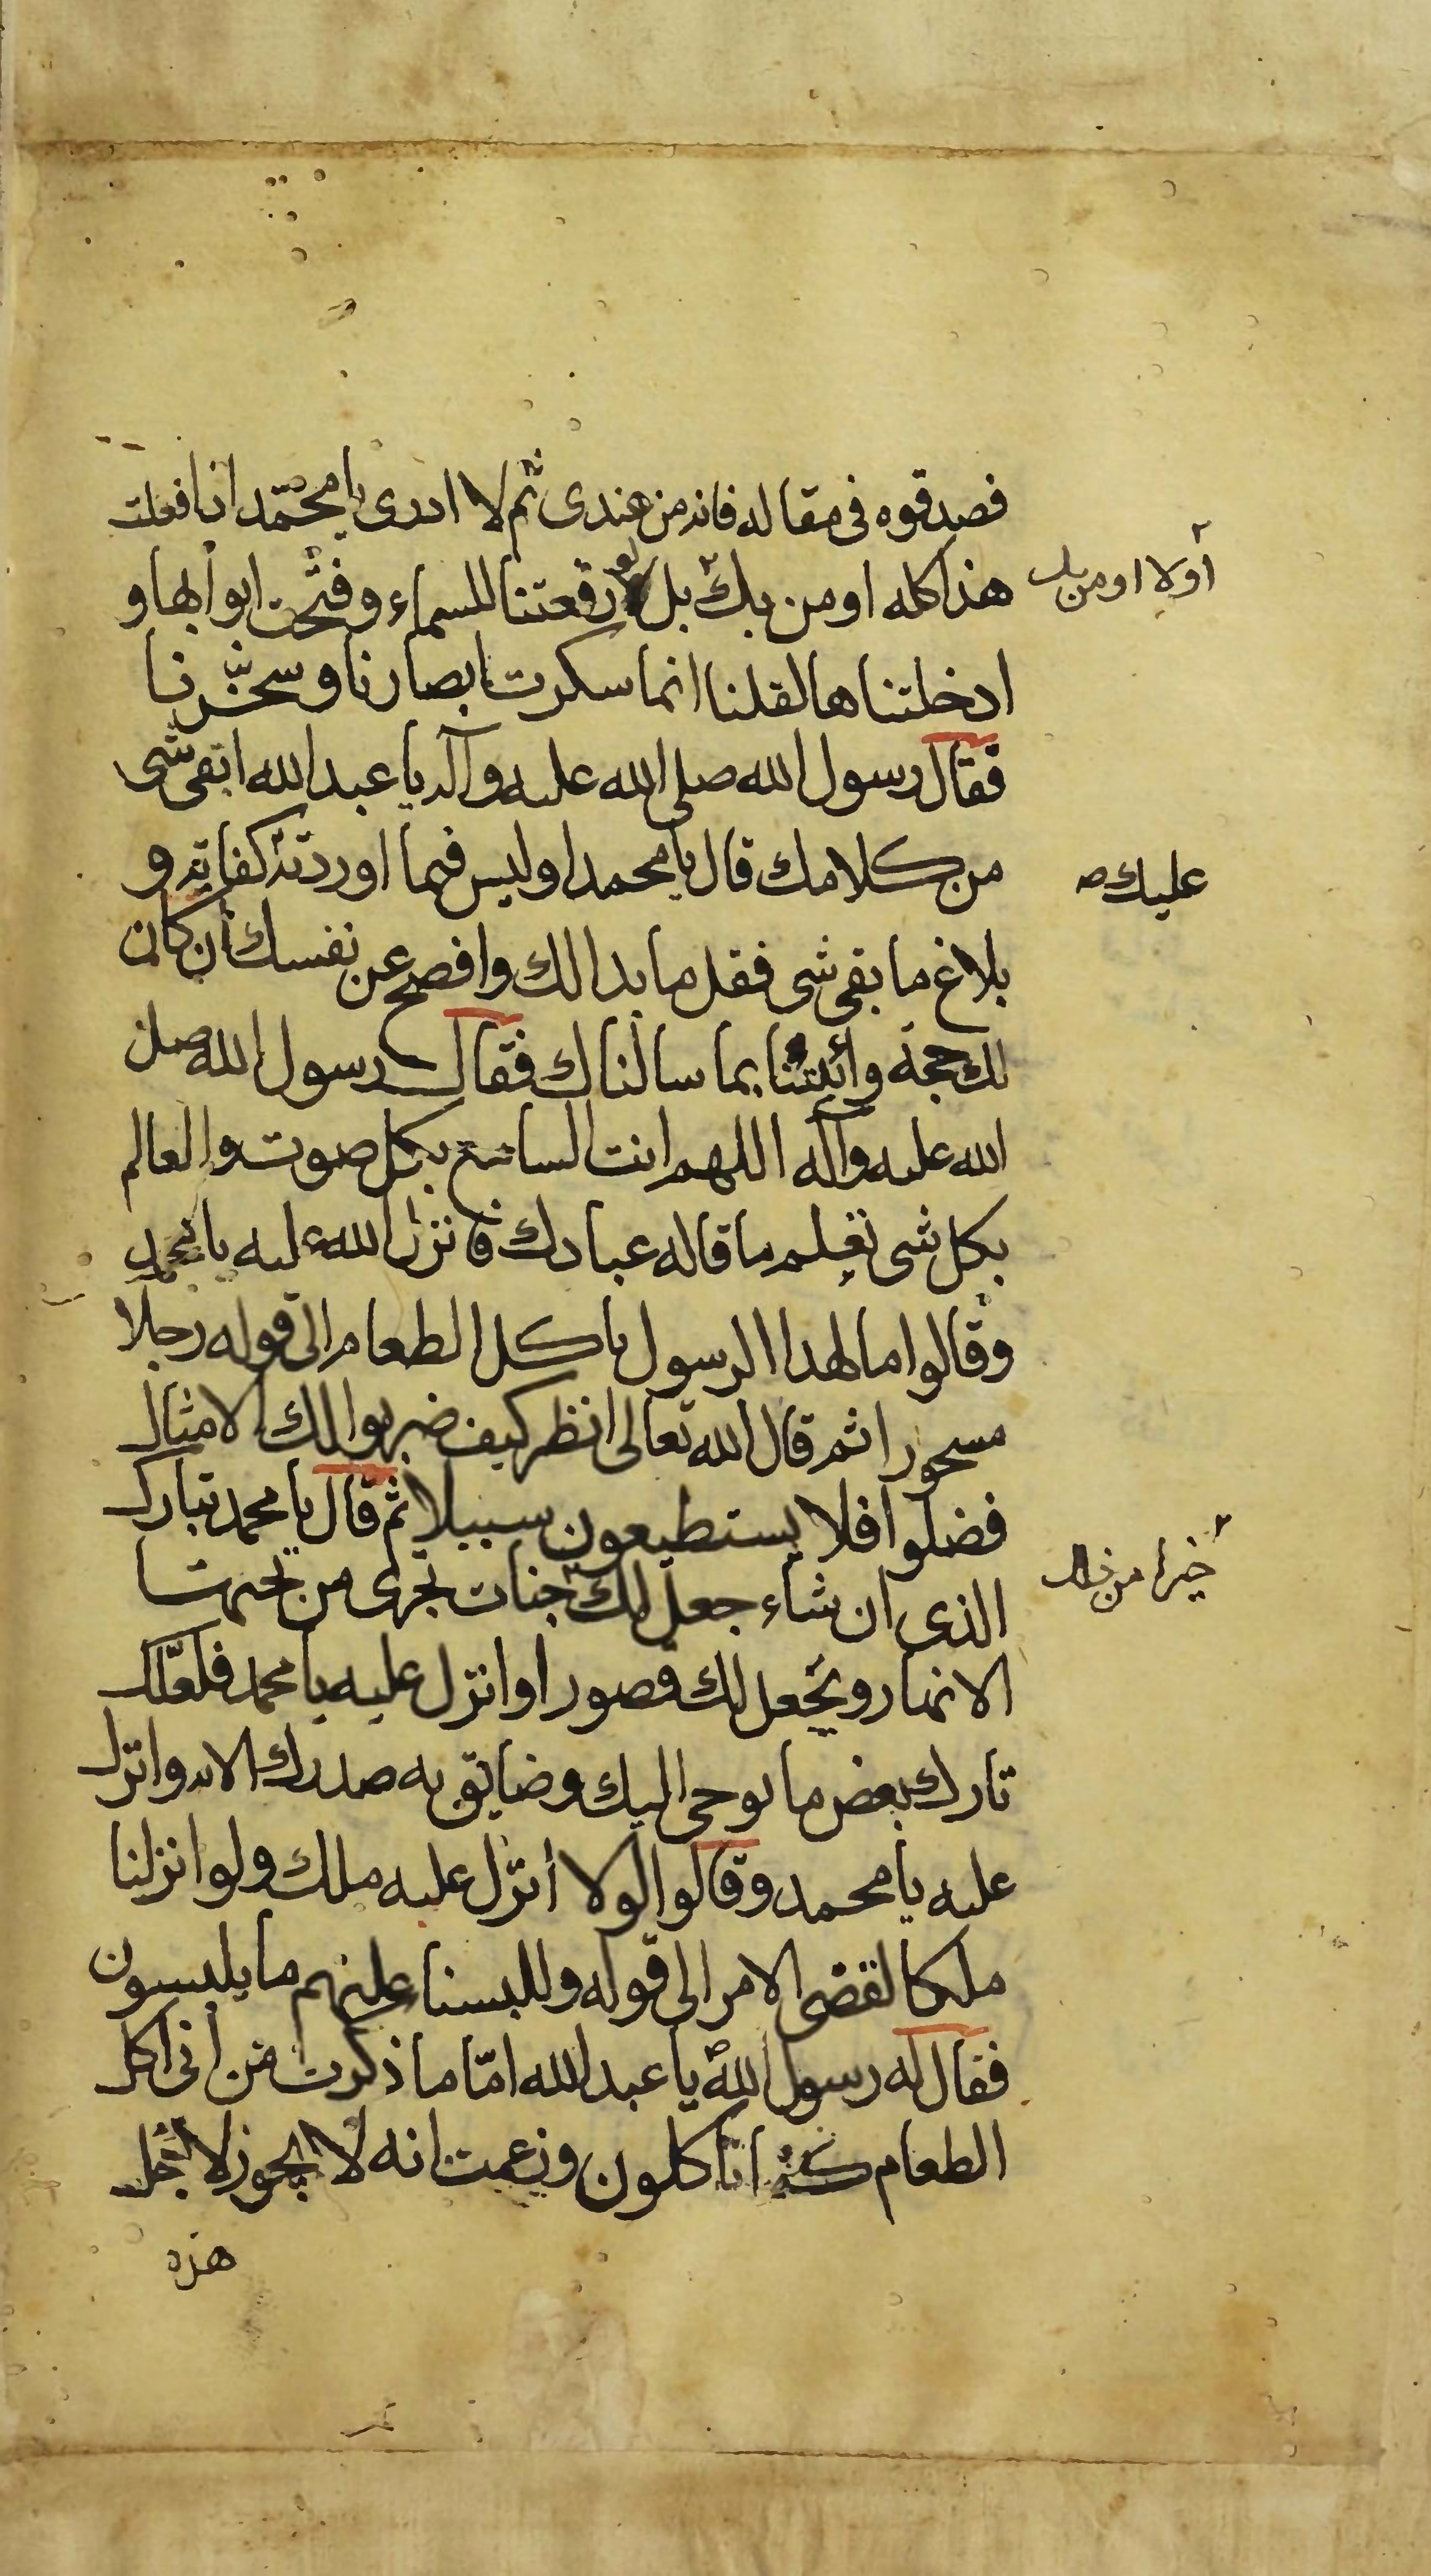 فصدقوه فى مقاله فانه من عندى ثم لا ادرى يا محمّد انا فعلت
هذا كله اومن بك بل لو رفعتنا للسماء وفتّحت ابوابها و
أولا اومن بك
ادخلتناها لقلنا انما سكرت ابصارنا و سحرّتنا
فقال رسول الله صلى الله عليه وآله يا عبد الله ابقى شى
من كلامك قال يا محمد اوليس فيما اوردته كفاية و
عليك صه
بلاغ ما بقى شى فقل ما بدالك وافصح عن نفسك أن كان
لك حجة وأئيتنا بما سالناك فقال رسول الله صلى
الله عليه وآله اللهم انت السامع بكل صوت والعالم
بكل شى تعلم ما قاله عبادك فانزل الله عليه يا محمد
وقالوا مالهذا الرسول ياكل الطعام الى قوله رجلا
مسحورا ثم قال الله تعالى انظر كيف ضربوا لك الامثال
فضلوا فلا يستطيعون سبيلا ثم قال يا محمد تبارك
الذى ان شاء جعل لك جنات تجرى من تحتها
خيرا من ذلك
الانهار ويجعل لك قصورا وانزل عليه يا محمد فلعلّك
تارك بعض ما يوحى اليك وضايق به صدرك الايه وانزل
عليه يا محمد وقالوا لولا أنزّل عليه ملك ولو انزلنا
ملكا لقضى الامر الى قوله وللبسنا عليهم ما يلبسون
فقال له رسول الله ص يا عبد الله امّا ما ذكرت من انى اكل
الطعام كما تاكلون وزعمت انه لا يجوز لاجل
هذه